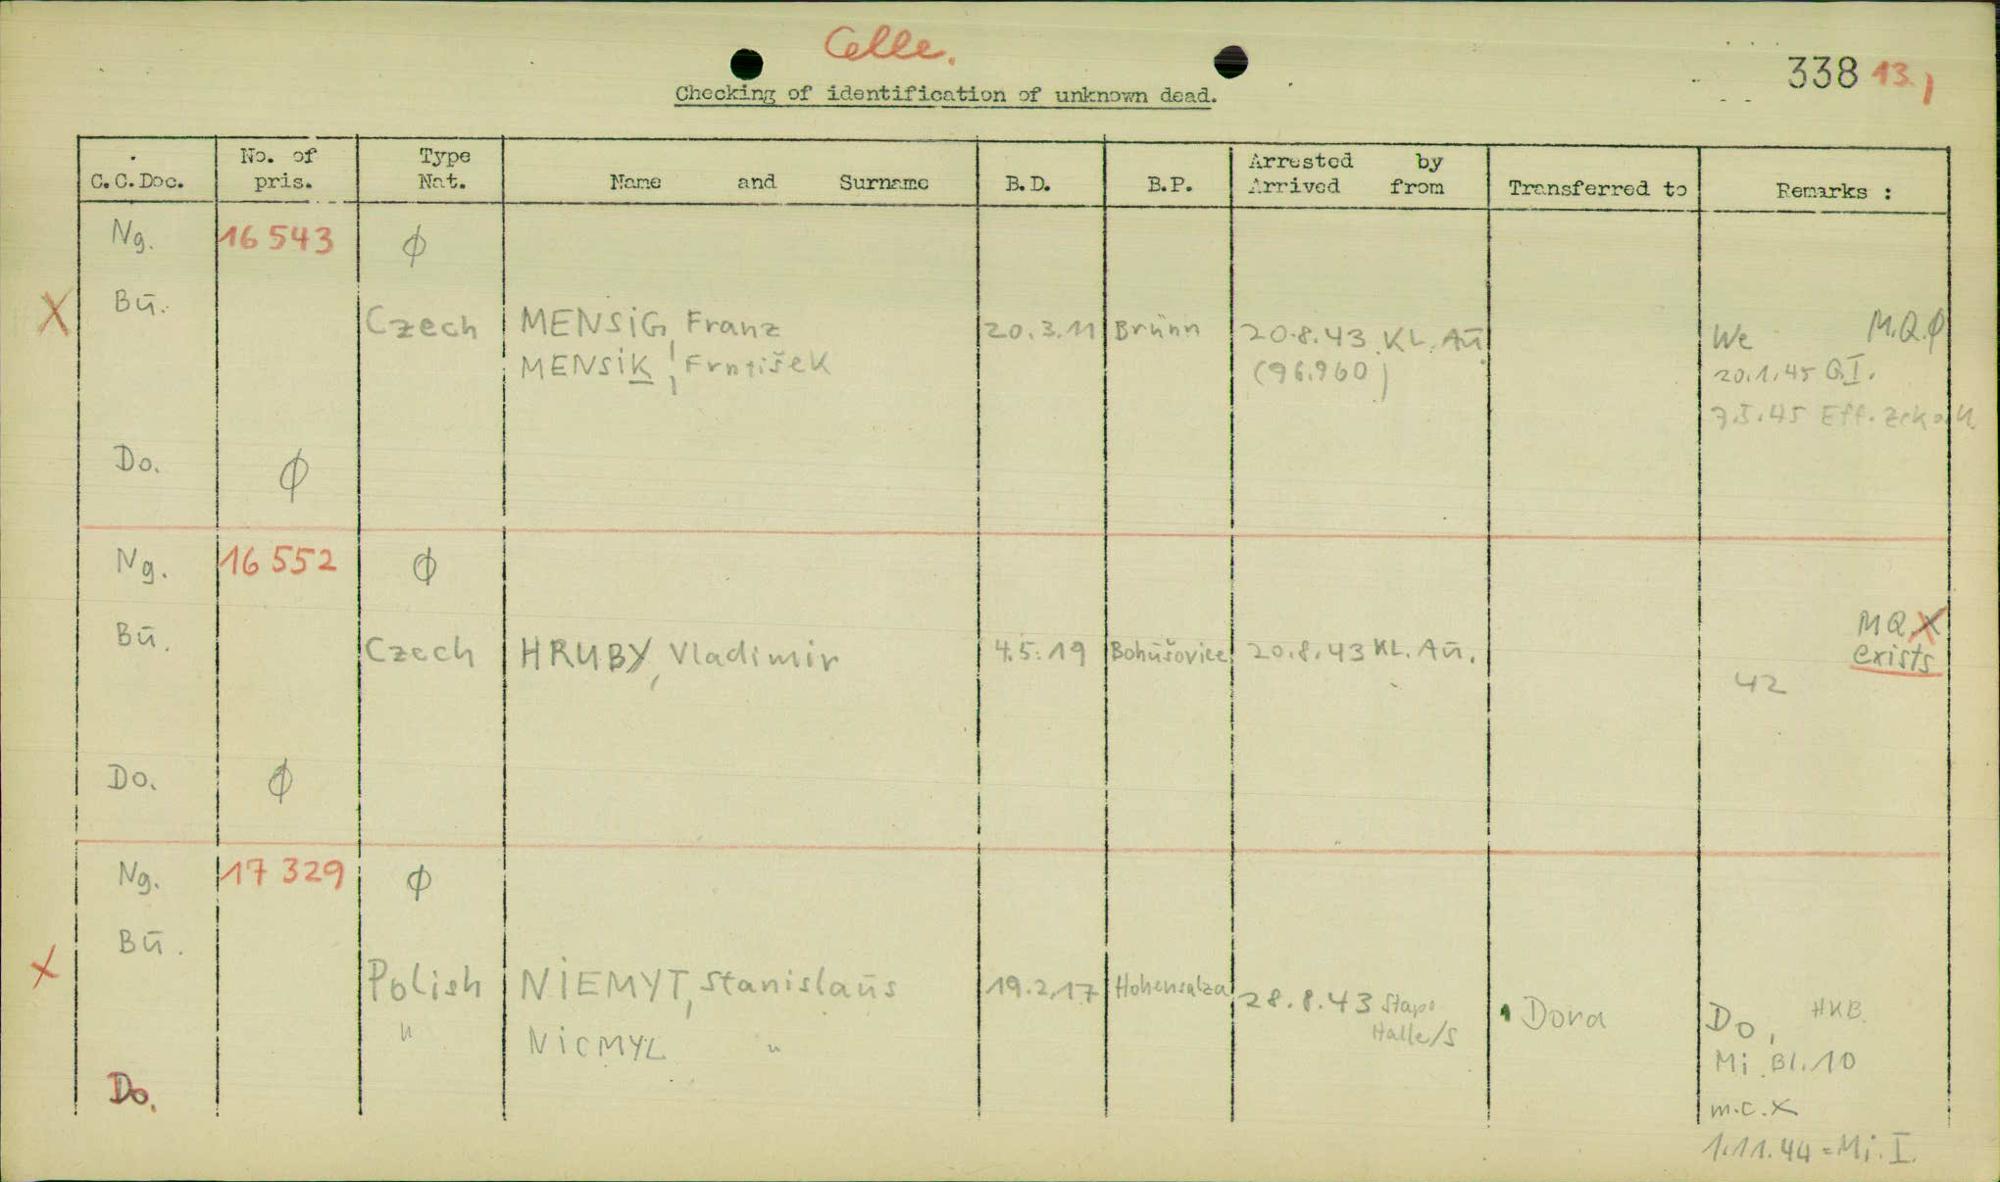 Celle.
338 13.)
Checking of identification of unknown dead.
C.C.Doc. No. of pris. Type Nat. Name and Surname B.D. B.P. Arrested by Arrived from Transferred to Remarks :
Ng. 16 543 ϕ
X Bū. Czech MENSiG, Franz 20.3.11 Brünn 20.8.43 KL. Aū We M.Q.ϕ
MENSiK, Frntišek (96.960) 20.1.45 Q.I.
7.I.45 Eff.
Do. ϕ
Ng. 16 552 ϕ
Bū. Czech HRUBY, Vladimir 4.5.19 Bohūšovice 20.8.43 KL. Aū. MQ X exists
42
Do. ϕ
Ng. 17 329 ϕ
X Bū. Polish NiEMYT, Stanislaūs 19.2.17 Hohensalza 28.8.43 Stapo Halle/S Dora Do, HKB.
" NiCMYL " Mi. Bl. 10
Do. m.c. X
1.11.44 = Mi. I.